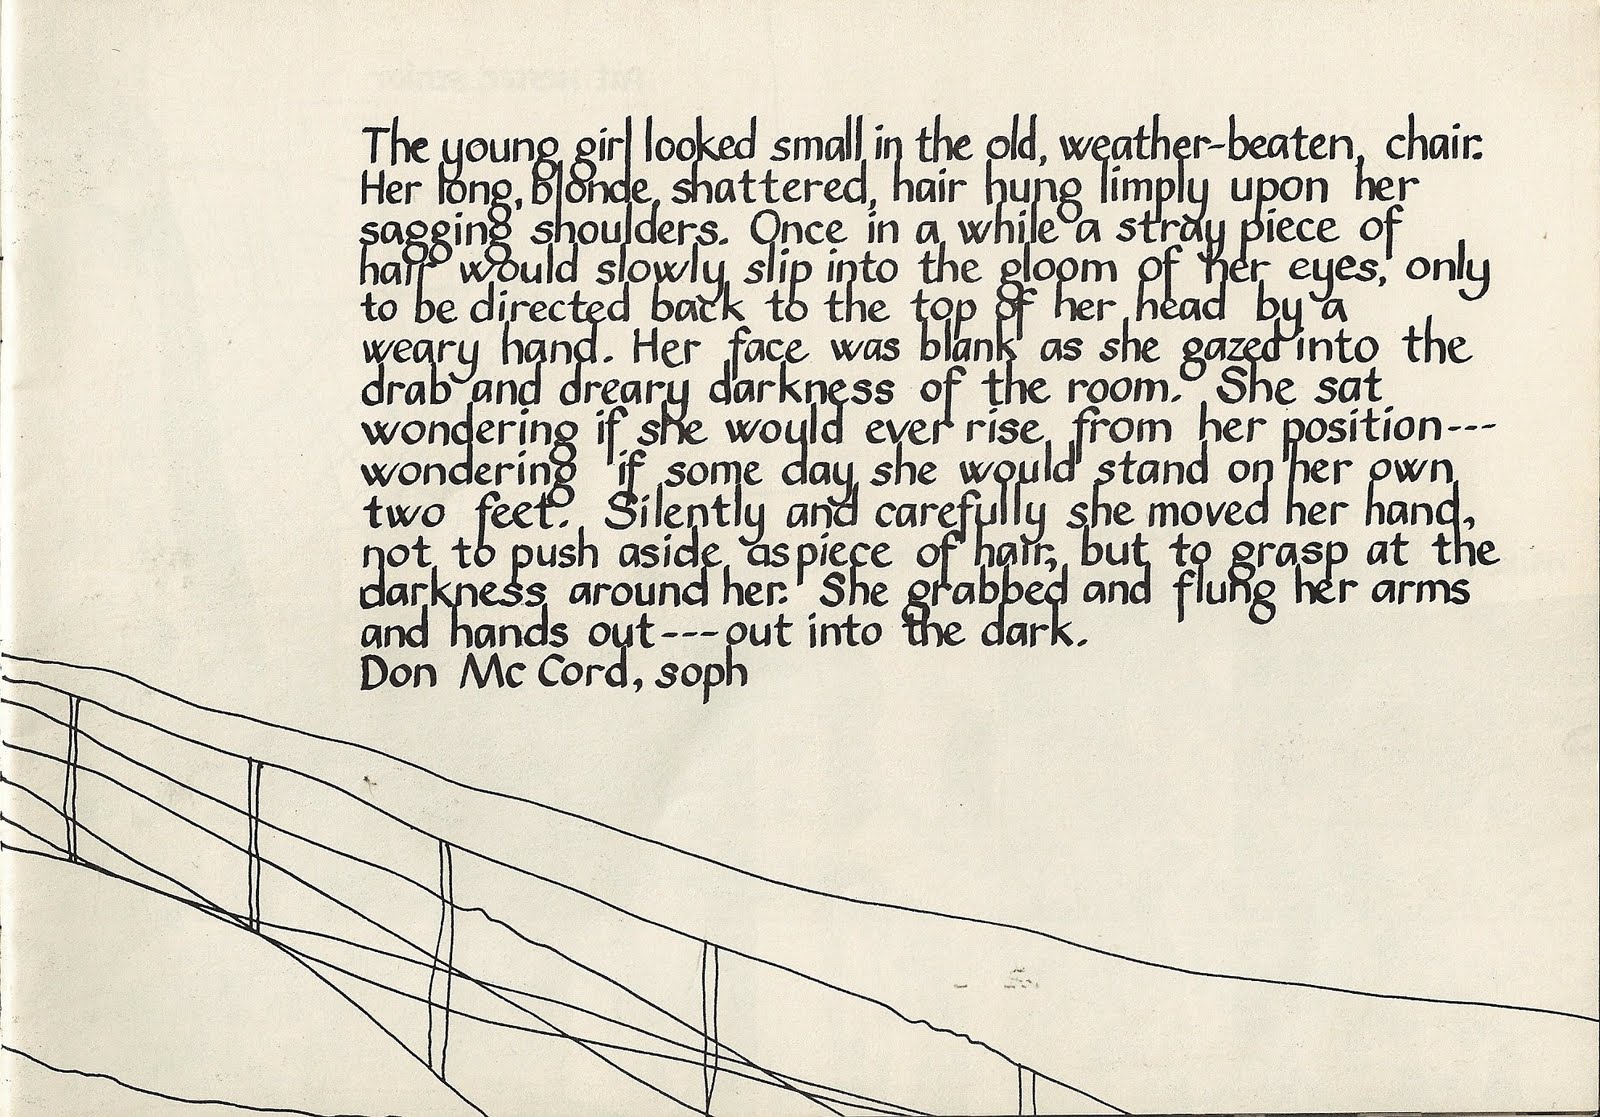 The young girl looked small in the old, weather-beaten, chair.
Her long, blonde, shattered, hair hung limply upon her
sagging shoulders. Once in a while a stray piece of
hair would slowly slip into the gloom of her eyes, only
to be directed back to the top of her head by a
weary hand. Her face was blank as she gazed into the
drab and dreary darkness of the room. She sat
wondering if she would ever rise from her position---
wondering if some day she would stand on her own
two feet. Silently and carefully she moved her hand,
not to push aside as piece of hair, but to grasp at the
darkness around her. She grabbed and flung her arms
and hands out---out into the dark.
Don Mc Cord, soph